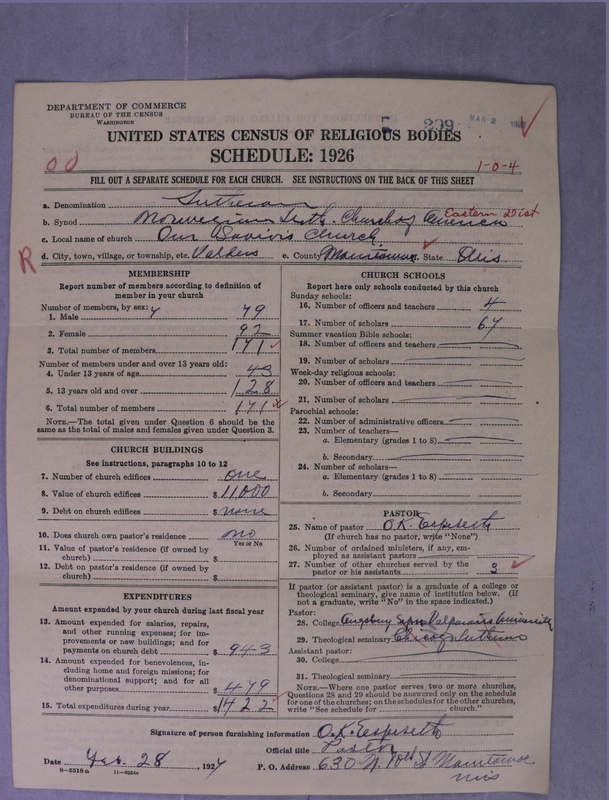 DEPARTMENT OF COMMERCE
BUREAU OF THE CENSUS
WASHINGTON
MAR 2
UNITED STATES CENSUS OF RELIGIOUS BODIES
SCHEDULE: 1926
1-0-4
FILL OUT A SEPARATE SCHEDULE FOR EACH CHURCH. SEE INSTRUCTIONS ON THE BACK OF THIS SHEET
a. Denomination Lutheran
b. Synod Norwegian Luth. Church of America Eastern Dist
c. Local name of church Our Saviors Church
R
d. City, town, village, or township, etc. Valders e. County Manitowoc State Wis
MEMBERSHIP
Report number of members according to definition of
member in your church
Number of members, by sex:
1. Male 79
2. Female 92
3. Total number of members 171
Number of members under and over 13 years old:
4. Under 13 years of age 43
5. 13 years old and over 128
6. Total number of members 171
NOTE.—The total given under Question 6 should be
same as the total of males and females given under Question 3.
CHURCH BUILDINGS
See instructions, paragraphs 10 to 12
7. Number of church edifices one
8. Value of church edifices $ 11000
9. Debt on church edifices $ none
10. Does church own pastor's residence no
Yes or No
11. Value of pastor's residence (if owned by
church) $
12. Debt on pastor's residence (if owned by
church) $
EXPENDITURES
Amount expended by your church during last fiscal year
13. Amount expended for salaries, repairs,
and other running expenses; for im-
provements or new buildings; and for
payments on church debt $ 943
14. Amount expended for benevolences, in-
cluding home and foreign missions; for
denominational support; and for all
other purposes $ 479
15. Total expenditures during year $ 1422
CHURCH SCHOOLS
Report here only schools conducted by this church
Sunday schools:
16. Number of officers and teachers 4
17. Number of scholars 67
Summer vacation Bible schools:
18. Number of officers and teachers
19. Number of scholars
Week-day religious schools:
20. Number of officers and teachers
21. Number of scholars
Parochial schools:
22. Number of administrative officers
23. Number of teachers—
a. Elementary (grades 1 to 8)
b. Secondary
24. Number of scholars—
a. Elementary (grades 1 to 8)
b. Secondary
PASTOR
25. Name of pastor O.K. Espeseth
(If church has no pastor, write "None")
26. Number of ordained ministers, if any, em-
ployed as assistant pastors
27. Number of other churches served by the
pastor or his assistants 3
If pastor (or assistant pastor) is a graduate of a college or
theological seminary, give name of institution below. (If
not a graduate, write "No" in the space indicated.)
Pastor:
28. College Augsburg Valparaiso University
29. Theological seminary Chicago Lutheran
Assistant pastor:
30. College
31. Theological seminary
NOTE.—Where one pastor serves two or more churches,
Questions 28 and 29 should be answered only on the schedule
for one of the churches; on the schedules for the other churches,
write "See schedule for church."
Signature of person furnishing information O.K. Espeseth
Official title Pastor
Date Feb. 28, 1927 P. O. Address 630 N. 10th St Manitowoc
Wis